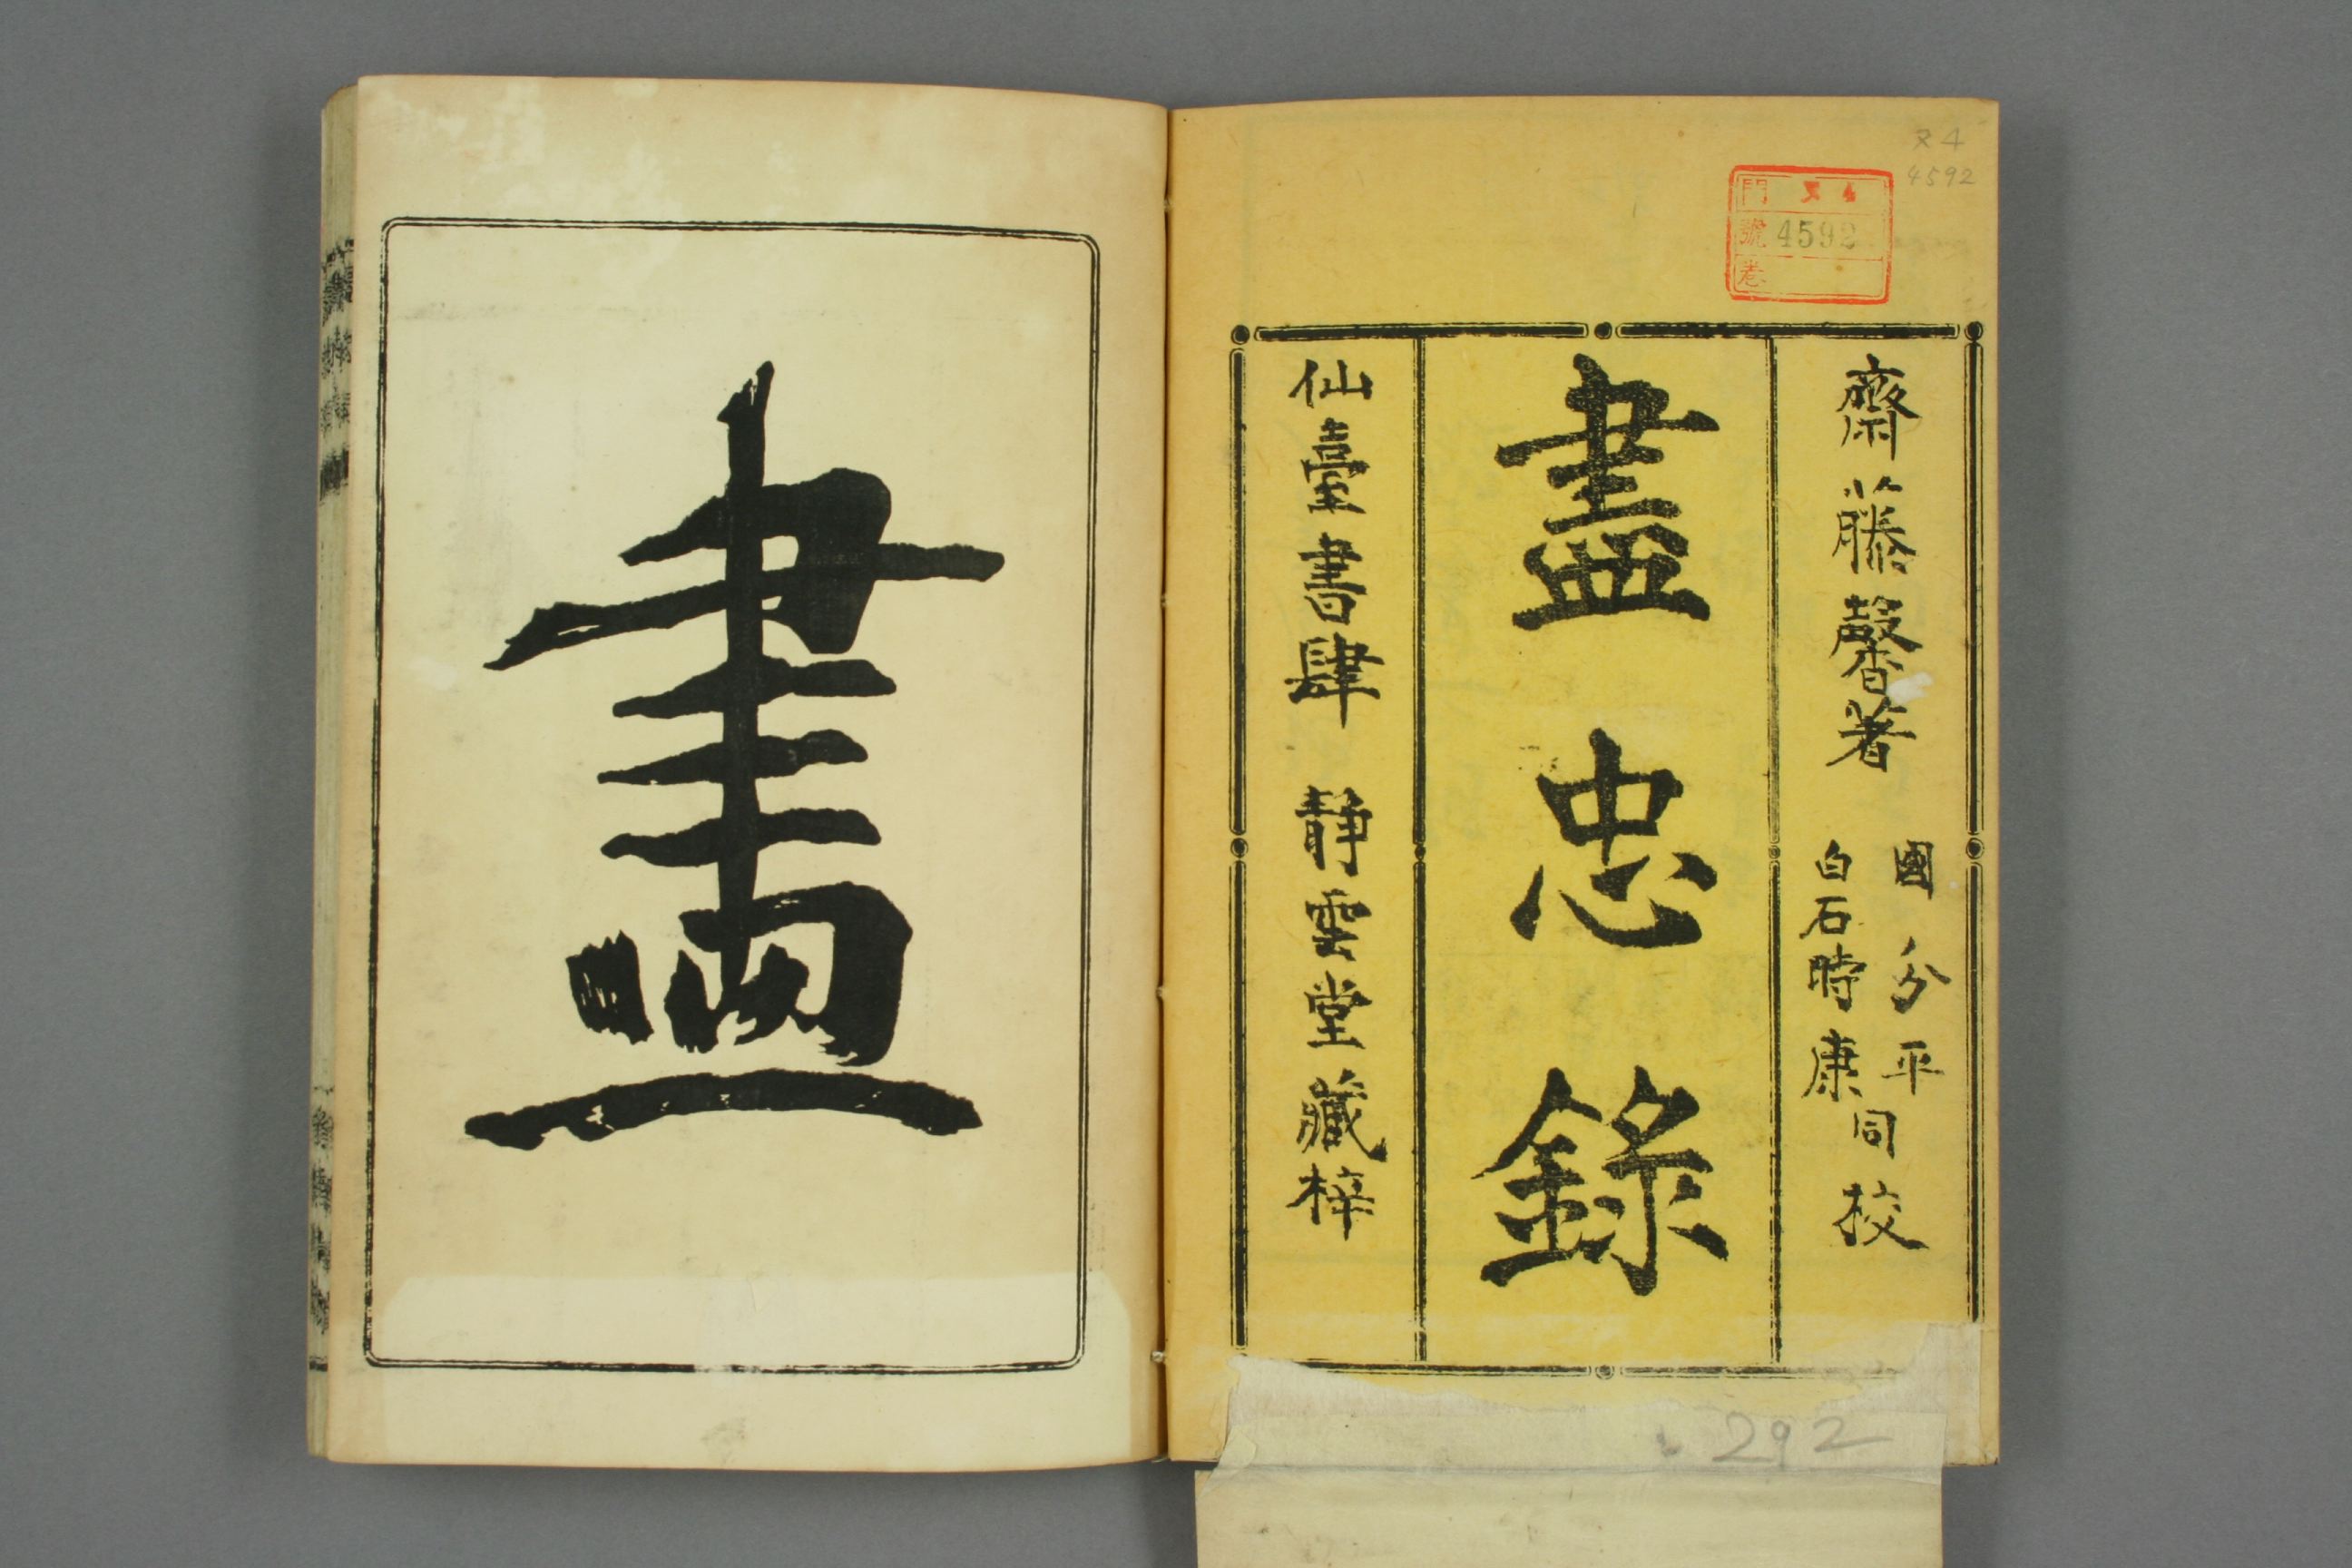 ヌ4
4592
門 ヌ4
號 4592
卷
齋藤馨著
國分平
白石時康
同校
盡忠錄
仙臺書肆 靜雲堂藏梓
292
盡